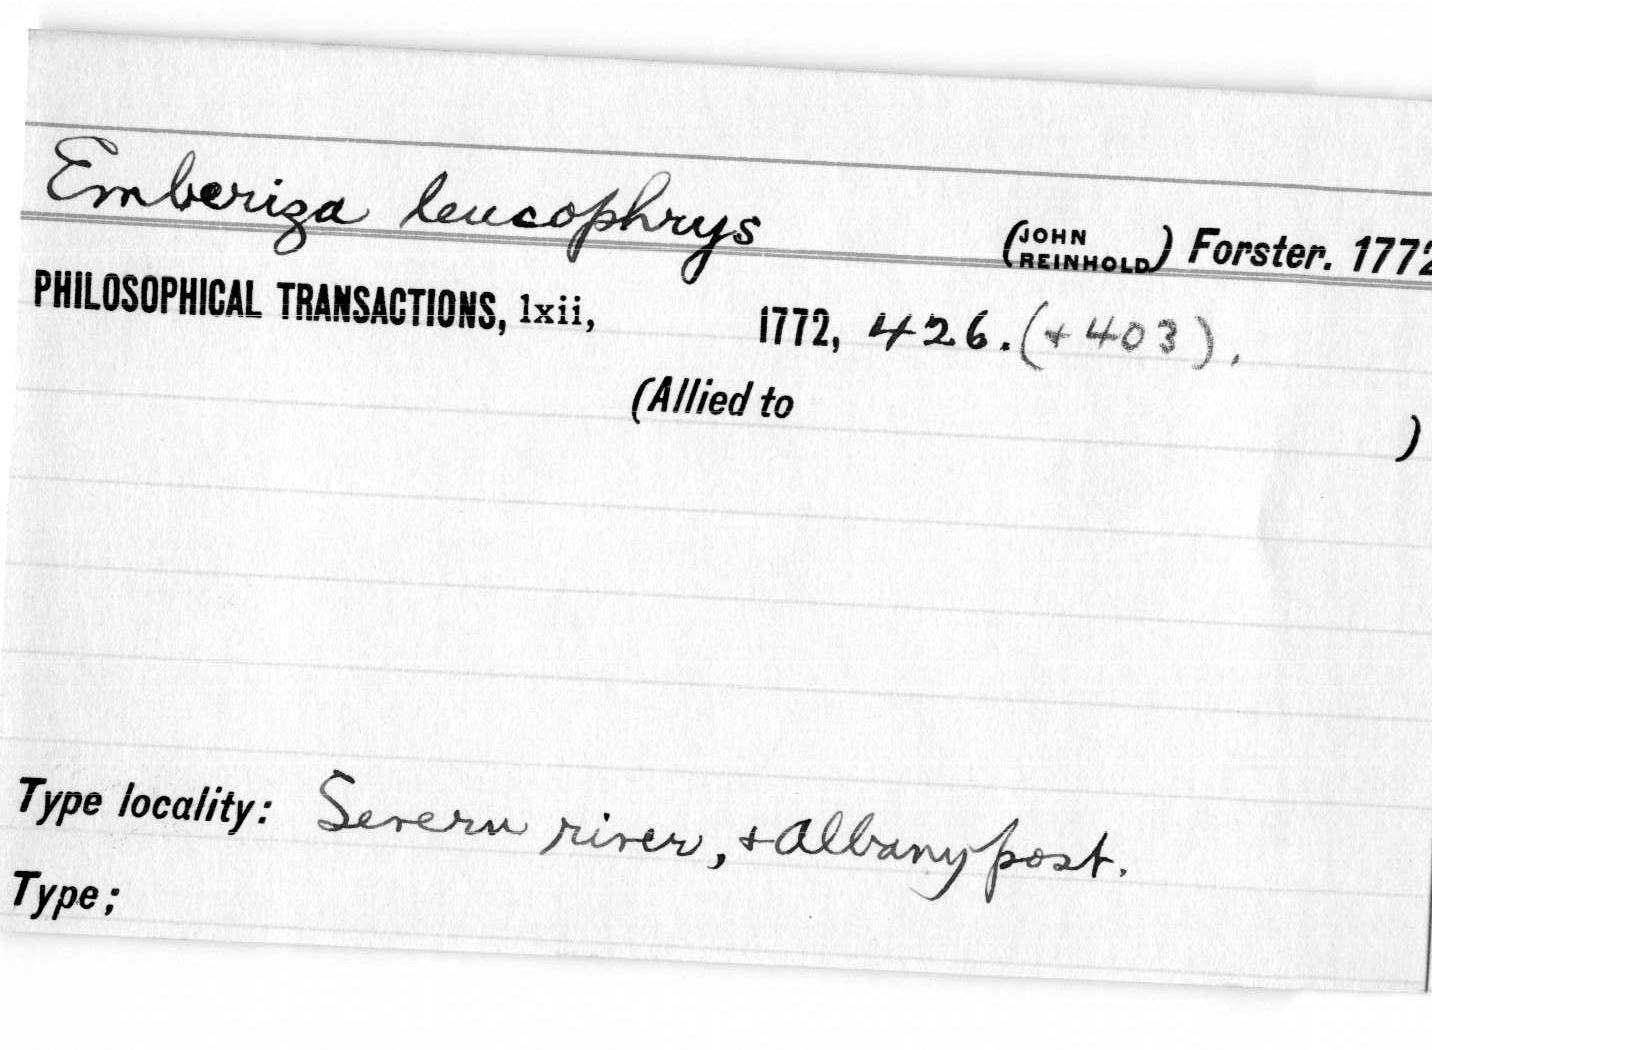 Emberiza leucophrys (JOHN REINHOLD) Forster. 1772
PHILOSOPHICAL TRANSACTIONS, lxii, 1772, 426. (+ 403).
(Allied to )
Type locality: Severn river, + Albany post.
Type;